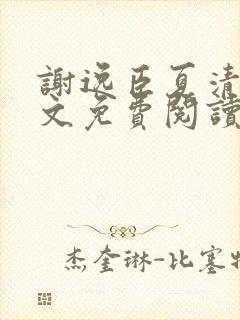 謝逸臣夏清
文免費閱讀
杰奎琳-比塞特